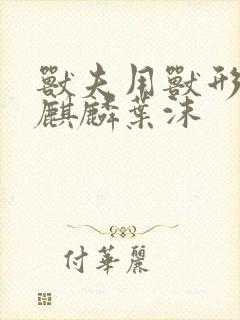 獸夫用獸形
麒麟葉沫
付華麗